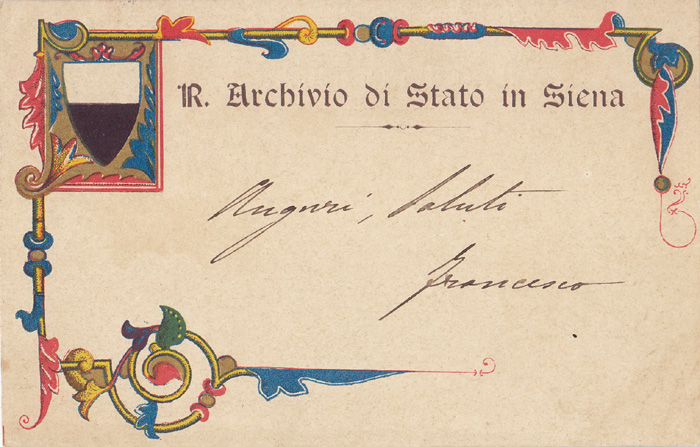 R. Archivio di Stato in Siena
Auguri, Saluti
Francesco